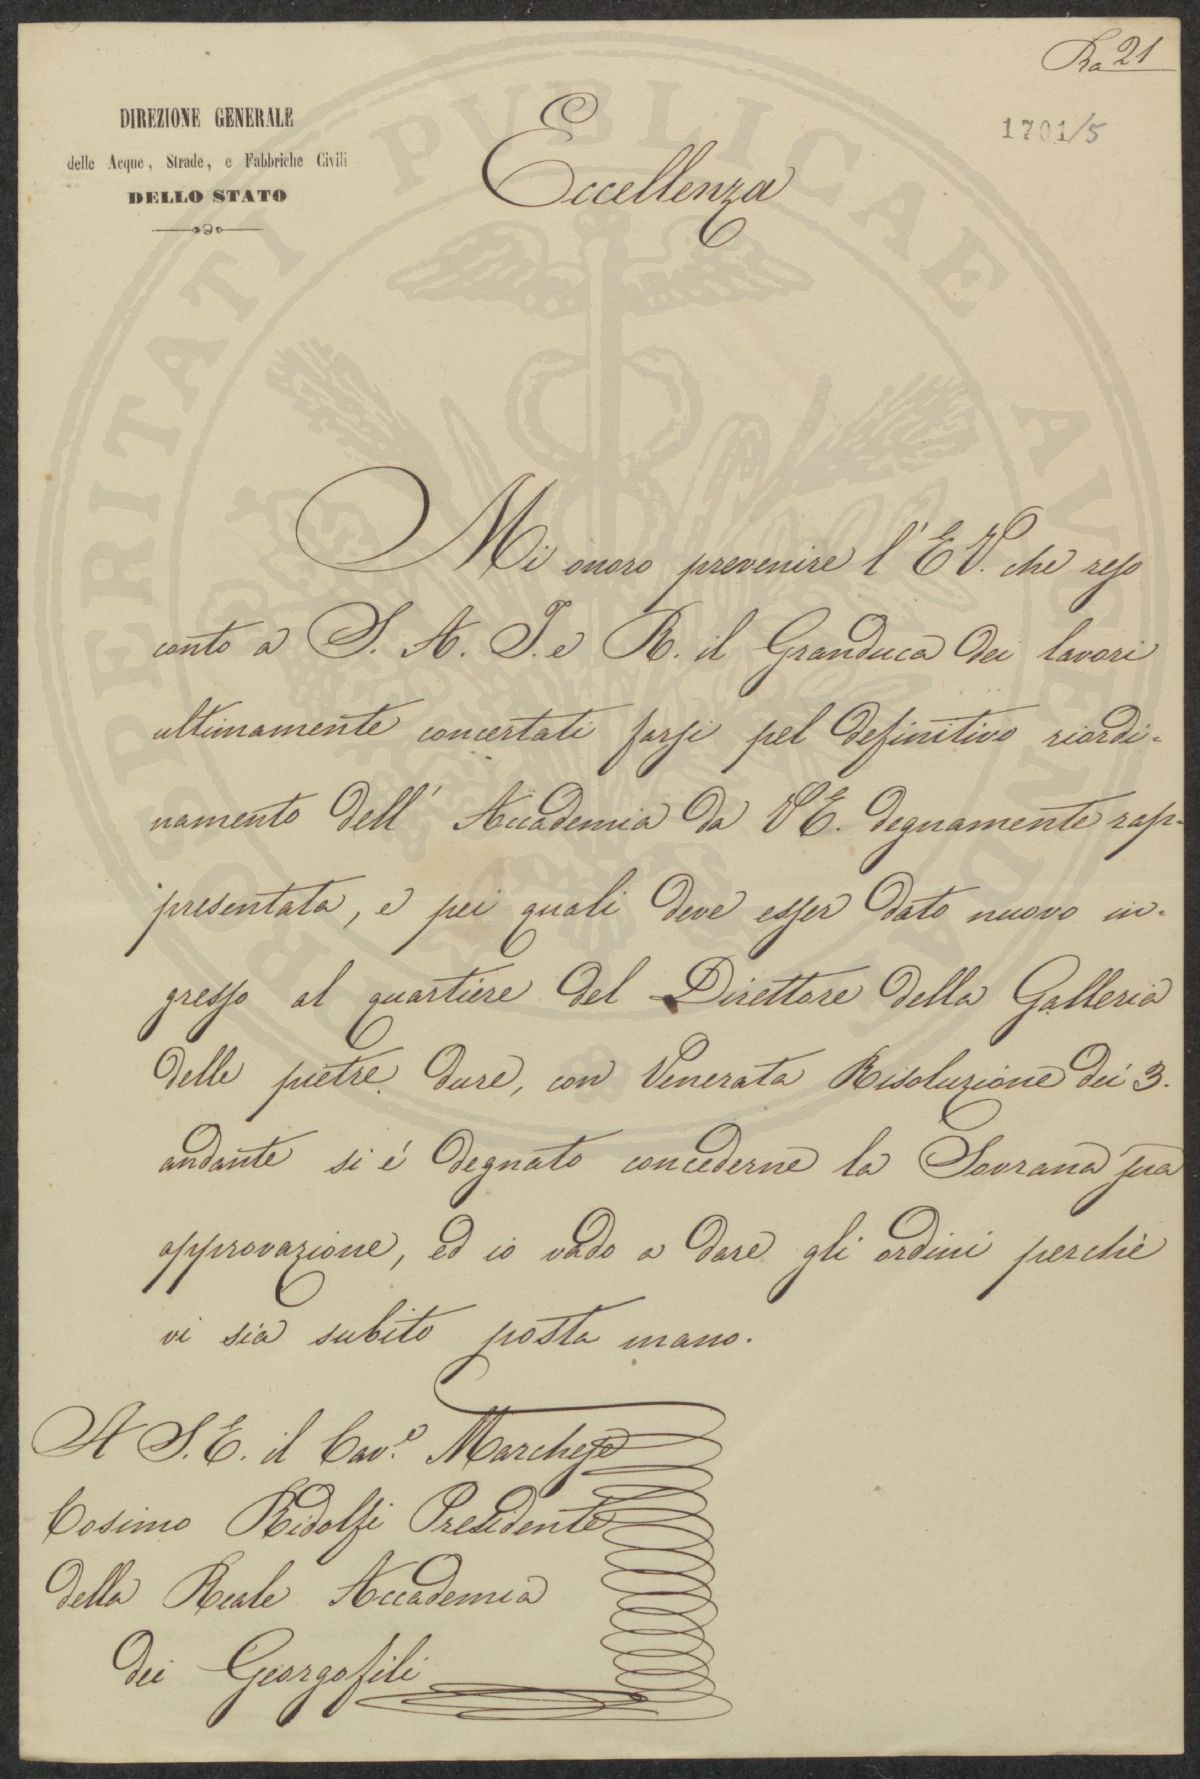 Ra 21
1701/5
DIREZIONE GENERALE
delle Acque, Strade, e Fabbriche Civili
DELLO STATO
Eccellenza
PROSPERITATI PUBLICAE AUGENDAE
Mi onoro prevenire l'E V. che reso
conto a S. A. I. e R. il Granduca dei lavori
ultimamente concertati farsi pel definitivo riordi-
namento dell' Accademia da V E. degnamente rap-
presentata, e pei quali deve esser dato nuovo in-
gresso al quartiere del Direttore della Galleria
delle pietre dure, con Venerata Risoluzione dei 3.
andante si é degnato concederne la Sovrana sua
approvazione, ed io vado a dare gli ordini perchè
vi sia subito posta mano.
A S. E. il Cav.e Marchese
Cosimo Ridolfi Presidente
della Reale Accademia
dei Georgofili